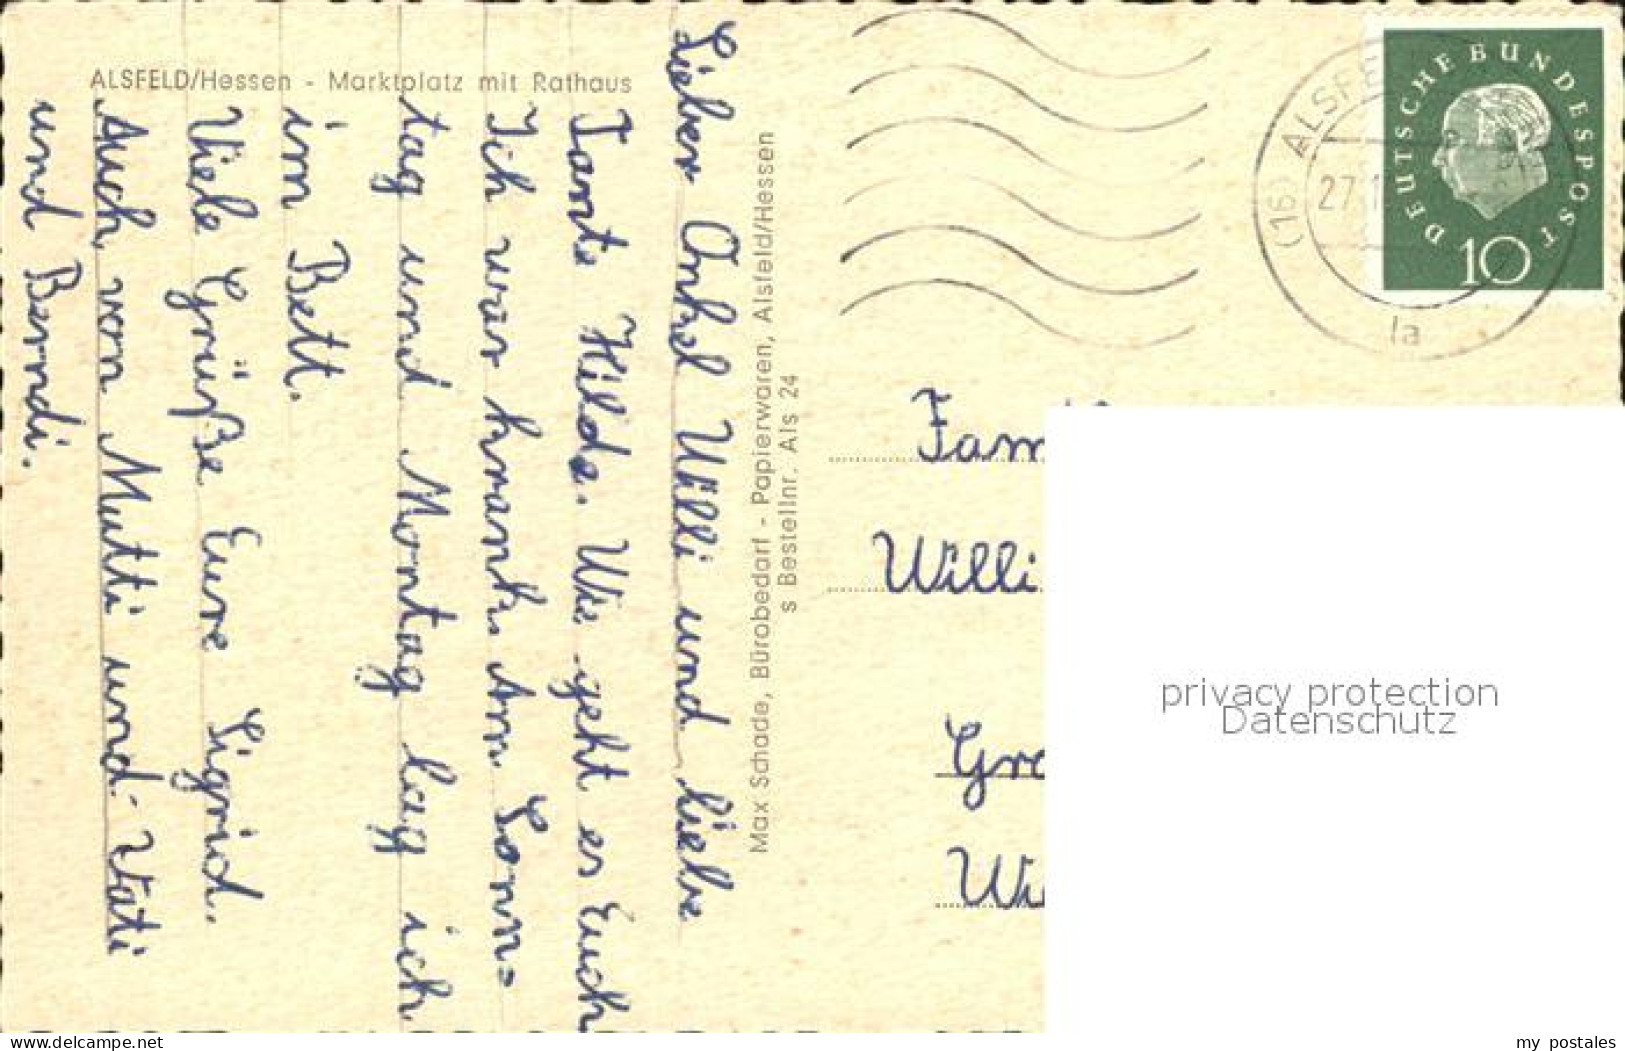 ALSFELD/Hessen - Marktplatz mit Rathaus
Lieber Onkel Willi und liebe
Tante Hilde. Wie geht es Euch
Ich war krank. Am Sonn=
tag und Montag lag ich
im Bett.
Viele Grüße Eure Sigrid.
Auch von Mutti und Vati
und Berndi.
Max Schade, Bürobedarf - Papierwaren, Alsfeld/Hessen
s Bestellnr. Als 24
(16) ALSFE
27.1
1a
DEUTSCHE BUNDESPOST
10
Fam
Willi
Gro
Wi
privacy protection
Datenschutz
the-bourse-aux-livres.com
my_postales